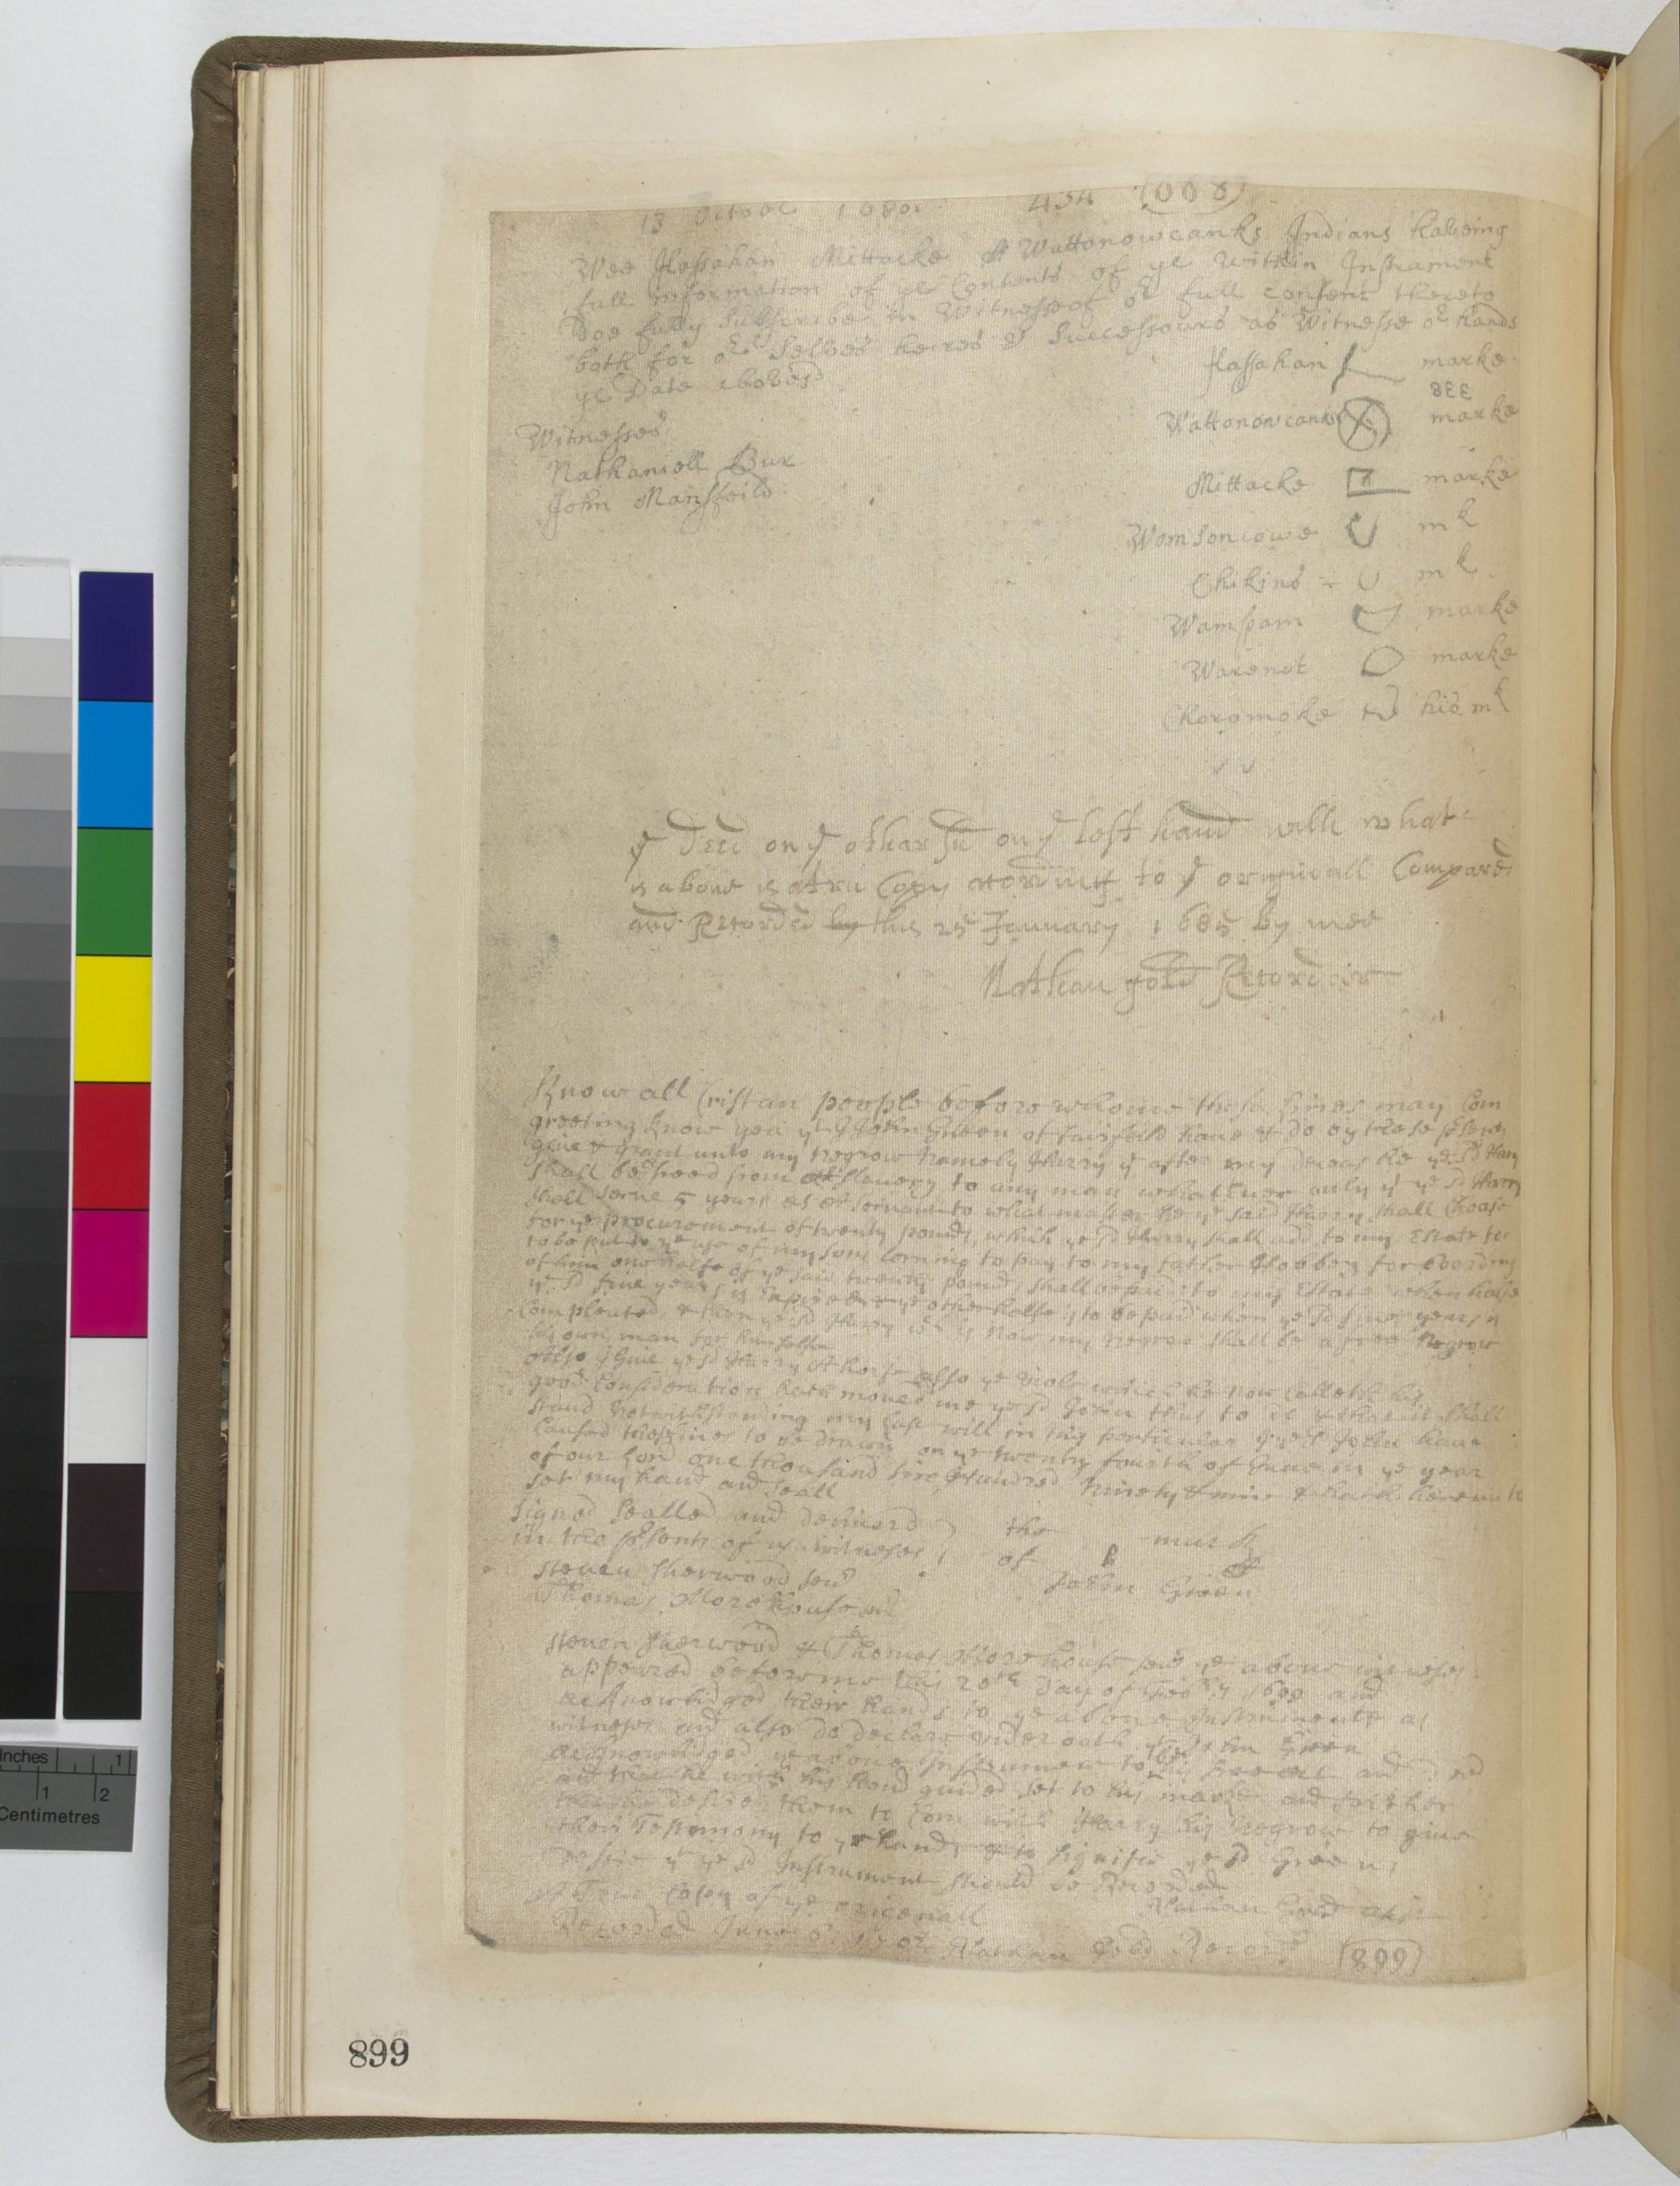 13 Octobe 1680. 454 (668)
Wee Hassahan Mittacke & Wattonowcanks Indians haveing
full information of ye Contents of ye within Instrument
Doe fully Subscribe in Witnesse of or full consent thereto
both for or Selves heires & Successours as Witnesse or hands
ye Date abovesd
Hassahan marke
338
Wattonowcanks marke
Witnesses
Nathaniell Bur
John Mansfeild
Mittacke marke
Womsoncowe mk
Chikins mk
Wampam marke
Warenot marke
Choromoke his mk
ye Deed on ye other sid on ye left hand with what
is above is a tru Copy acording to ye originall Compared
and Recorded by this 25 January 1685 by mee
Nathan gold Recorder
Know all Cristan people before whome these lines may Com
greeting know yea yt I John Green of fairfeild have & do by these psents
give & grant unto my negrow namely Harry yt after my deceas he ye sd Harry
shall be freed from all slavery to any man whattever only yt ye sd Harry
shall serve 5 years as a servant to what master he ye said Harry shall Choose
for ye procurement of twenty pounds, which ye sd Harry shall add to my Estate
to be put to ye use of my sons lerning to pay to my father for boarding
of him one halfe of ye said twenty pounds shall be paid to my Estate when halfe
ye sd five years is Expired & ye other halfe is to be paid when ye sd five years is
Compleated & then ye sd Harry wh is now my negroe shall be a free negrow
his own man for himselfe
Also I give ye sd Harry A horse also ye which he now calleth his
good Consideration hath moved me ye sd John thus to do & that it shall
stand notwithstanding my last will in this particular I ye sd John have
Caused these lines to be drawn on ye twenty fourth of June in ye year
of our Lord one thousand six Hundred ninety & nine & hath hereunto
set my hand and seall
Signed sealled and deliverd the mark
in the psents of us witneses of
Steven Sherwood senr John Green
Thomas Morehouse
Steven Sherwood & Thomas Morehouse senr ye above witneses
appeared before me this 20th Day of 1699 and
acknowlidged their hands to ye above Instrumente as
witneses and also do declare under oath yt John Green
acknowlidged ye above Instrument to be his and Deed
and that he with his hand guided set to his mark and farther
that he desired them to Com with Harry his negrow to give
their Testemony to yr hands & to signifie ye sd Greens
desire yt ye sd Instrument should be Recorded
A True Copy of ye origenall Nathan Gold
Recorded June 6 Nathan Gold Recorder (899)
899
Inches 1
1 2
Centimetres